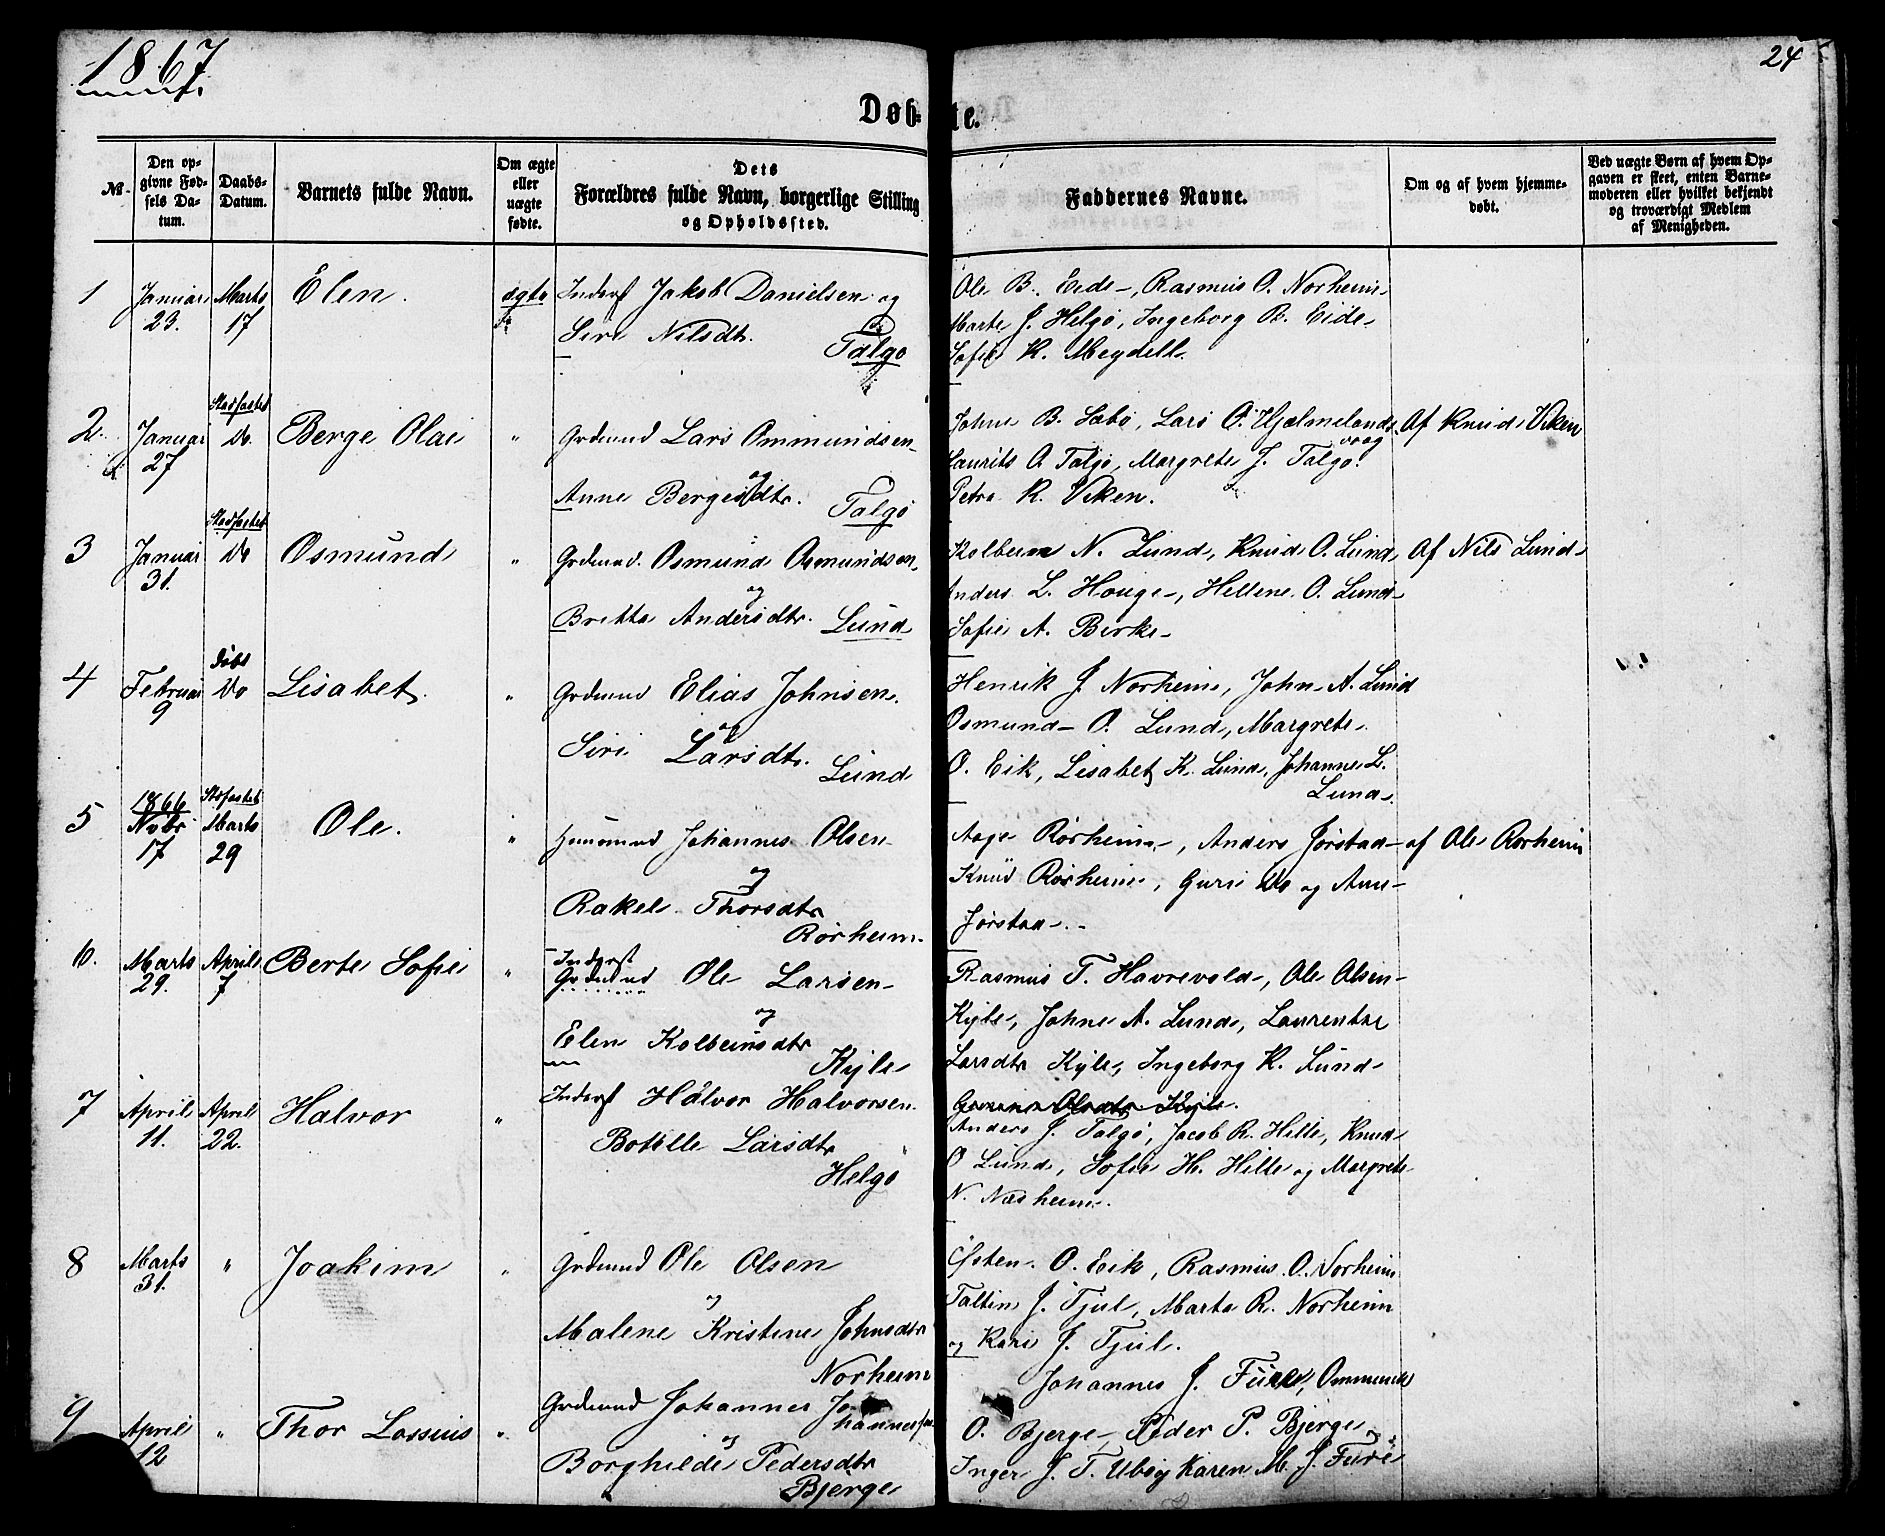 1867
24
Døbte.
№
Den opgivne Fødsels Datum.
Daabs-Datum.
Barnets fulde Navn.
Om ægte eller uægte fødte.
Dets Forældres fulde Navn, borgerlige Stilling og Opholdssted.
Faddernes Navne.
Om og af hvem hjemmedøbt.
Ved uægte Børn af hvem Opgaven er skeet, enten Barnemoderen eller hvilket bekjendt og troværdigt Medlem af Menigheden.
1 Januar 23. Marts 17 Elen. ægte
Inderst Jakob Danielsen og
Siri Nilsdtr. Talgø
Ole B. Eide, Rasmus O. Norheim
Marte J. Helgø, Ingeborg B. Eide
Sofie K. Meydell.
2. Januar 27 Stadfæstet Do. Berge Olai "
Grdmnd Lars Ommundsen
og
Anne Bergesdtr. Talgø
Johne B. Sæbø, Lars O. Hjelmelandsvaag
Laurits O. Talgø, Margrete J. Talgø.
Petra K. Viken.
Af Knud Viken
3 Januar 31. Stadfæstet Do Osmund "
Grdmnd. Osmund Osmundsen
og
Britta Andersdtr. Lund
Kolbein N. Lund, Knud O. Lund,
Anders L. Houge, Hellene O. Lund
Sofie A. Birke
Af Nils Lund
4 Februar 9 døbt Do Lisabet. "
Grdmnd Elias Johnsen.
og
Siri Larsdtr. Lund
Henrik J Norheim, John A. Lund
Osmund O. Lund, Margrete
O. Eik, Lisabet K. Lund, Johanne L.
Lund.
5 1866 Novbr 17 Stadfæstet Marts 29 Ole. "
Huusmnd Johannes Olsen
og
Rakel Thorsdtr
Rørheim.
Aage Rørheim, Anders Jørstad
Knud Rørheim, Guri Do og Ane
Jørstad.
af Ole Rørheim
6. Marts 29. April 7 Berte Sofie "
Inderst
Grdmnd Ole Larsen
og
Elen Kolbeinsdtr
Kyle
Rasmus T. Havrevold, Ole Olsen
Kyle, Johne A. Lund, Laurentze
Larsdtr Kyle, Ingeborg K. Lund
7 April 11. April 22. Halvor "
Inderst Halvor Halvorsen.
Botille Larsdtr
Helgø
Olsdtr Kyle.
Anders J. Talgø, Jacob R. Hille, Knud
O Lund, Sofie H. Hille og Margrete
N. Næsheim.
8 Marts 31. " Joakim "
Grdmnd Ole Olsen
og
Malene Kristine Johnsdtr
Norheim
Østen O. Eik, Rasmus O. Norheim
Taltin J. Tjul, Marta R. Norheim
og Kari J. Tjul.
9 April 12 " Thor Lassius "
Grdmnd Johannes Johannessen
og
Borghilde Pedersdtr
Bjerge
Johannes J. Fure, Ommund
O. Bjerge, Peder P. Bjerge
Inger J. T. Ubøy Karen M. J. Fure